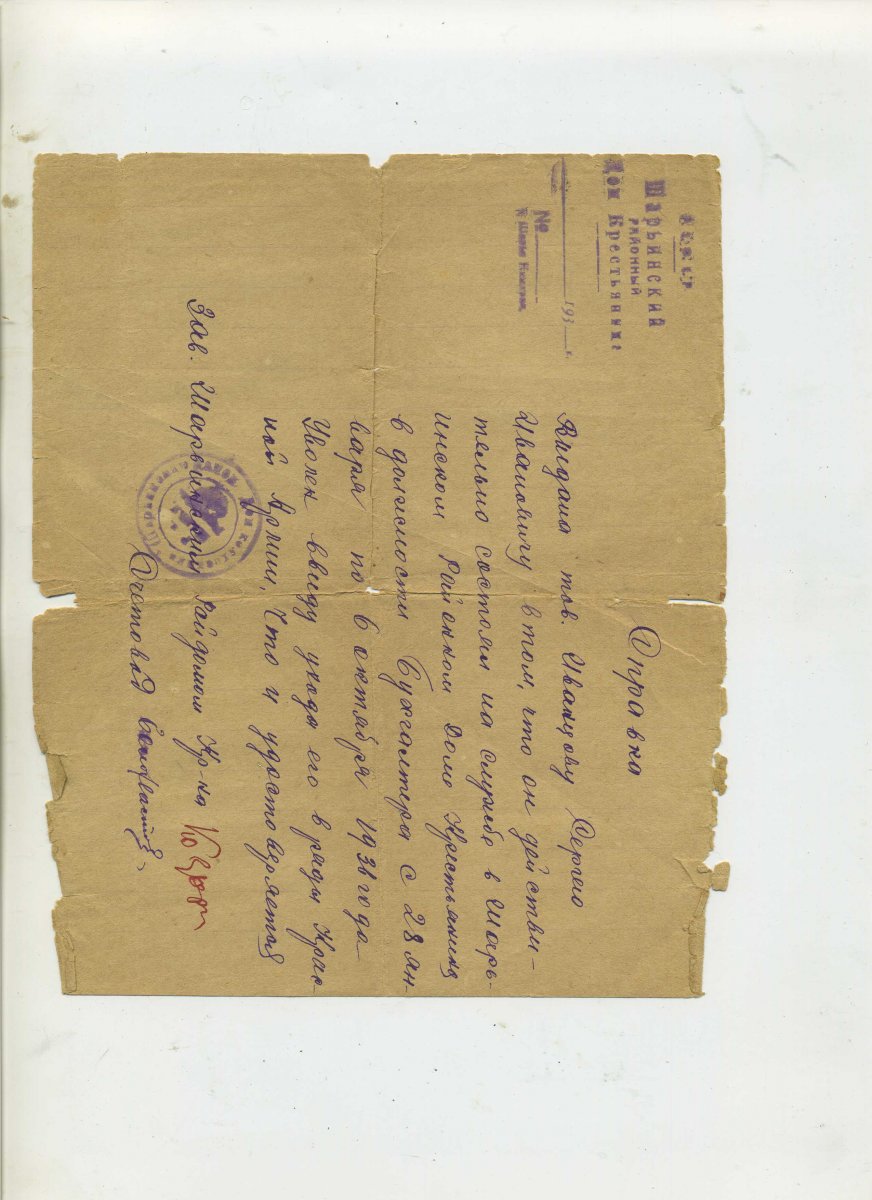 Шарьинский
районный
Дом Крестьянина
193 г.
№
Справка
Выдана тов. Иванцову Сергею
Ивановичу в том, что он действи-
тельно состоял на службе в Шарь-
инском Районном Доме Крестьянина
в должности Бухгалтера с 28 ян-
варя по 6 октября 1931 года
Уволен ввиду ухода его в ряды Крас-
ной Армии, что и удостоверяется
Зав. Шарьинским Райдомом Кр-на
Счетовод